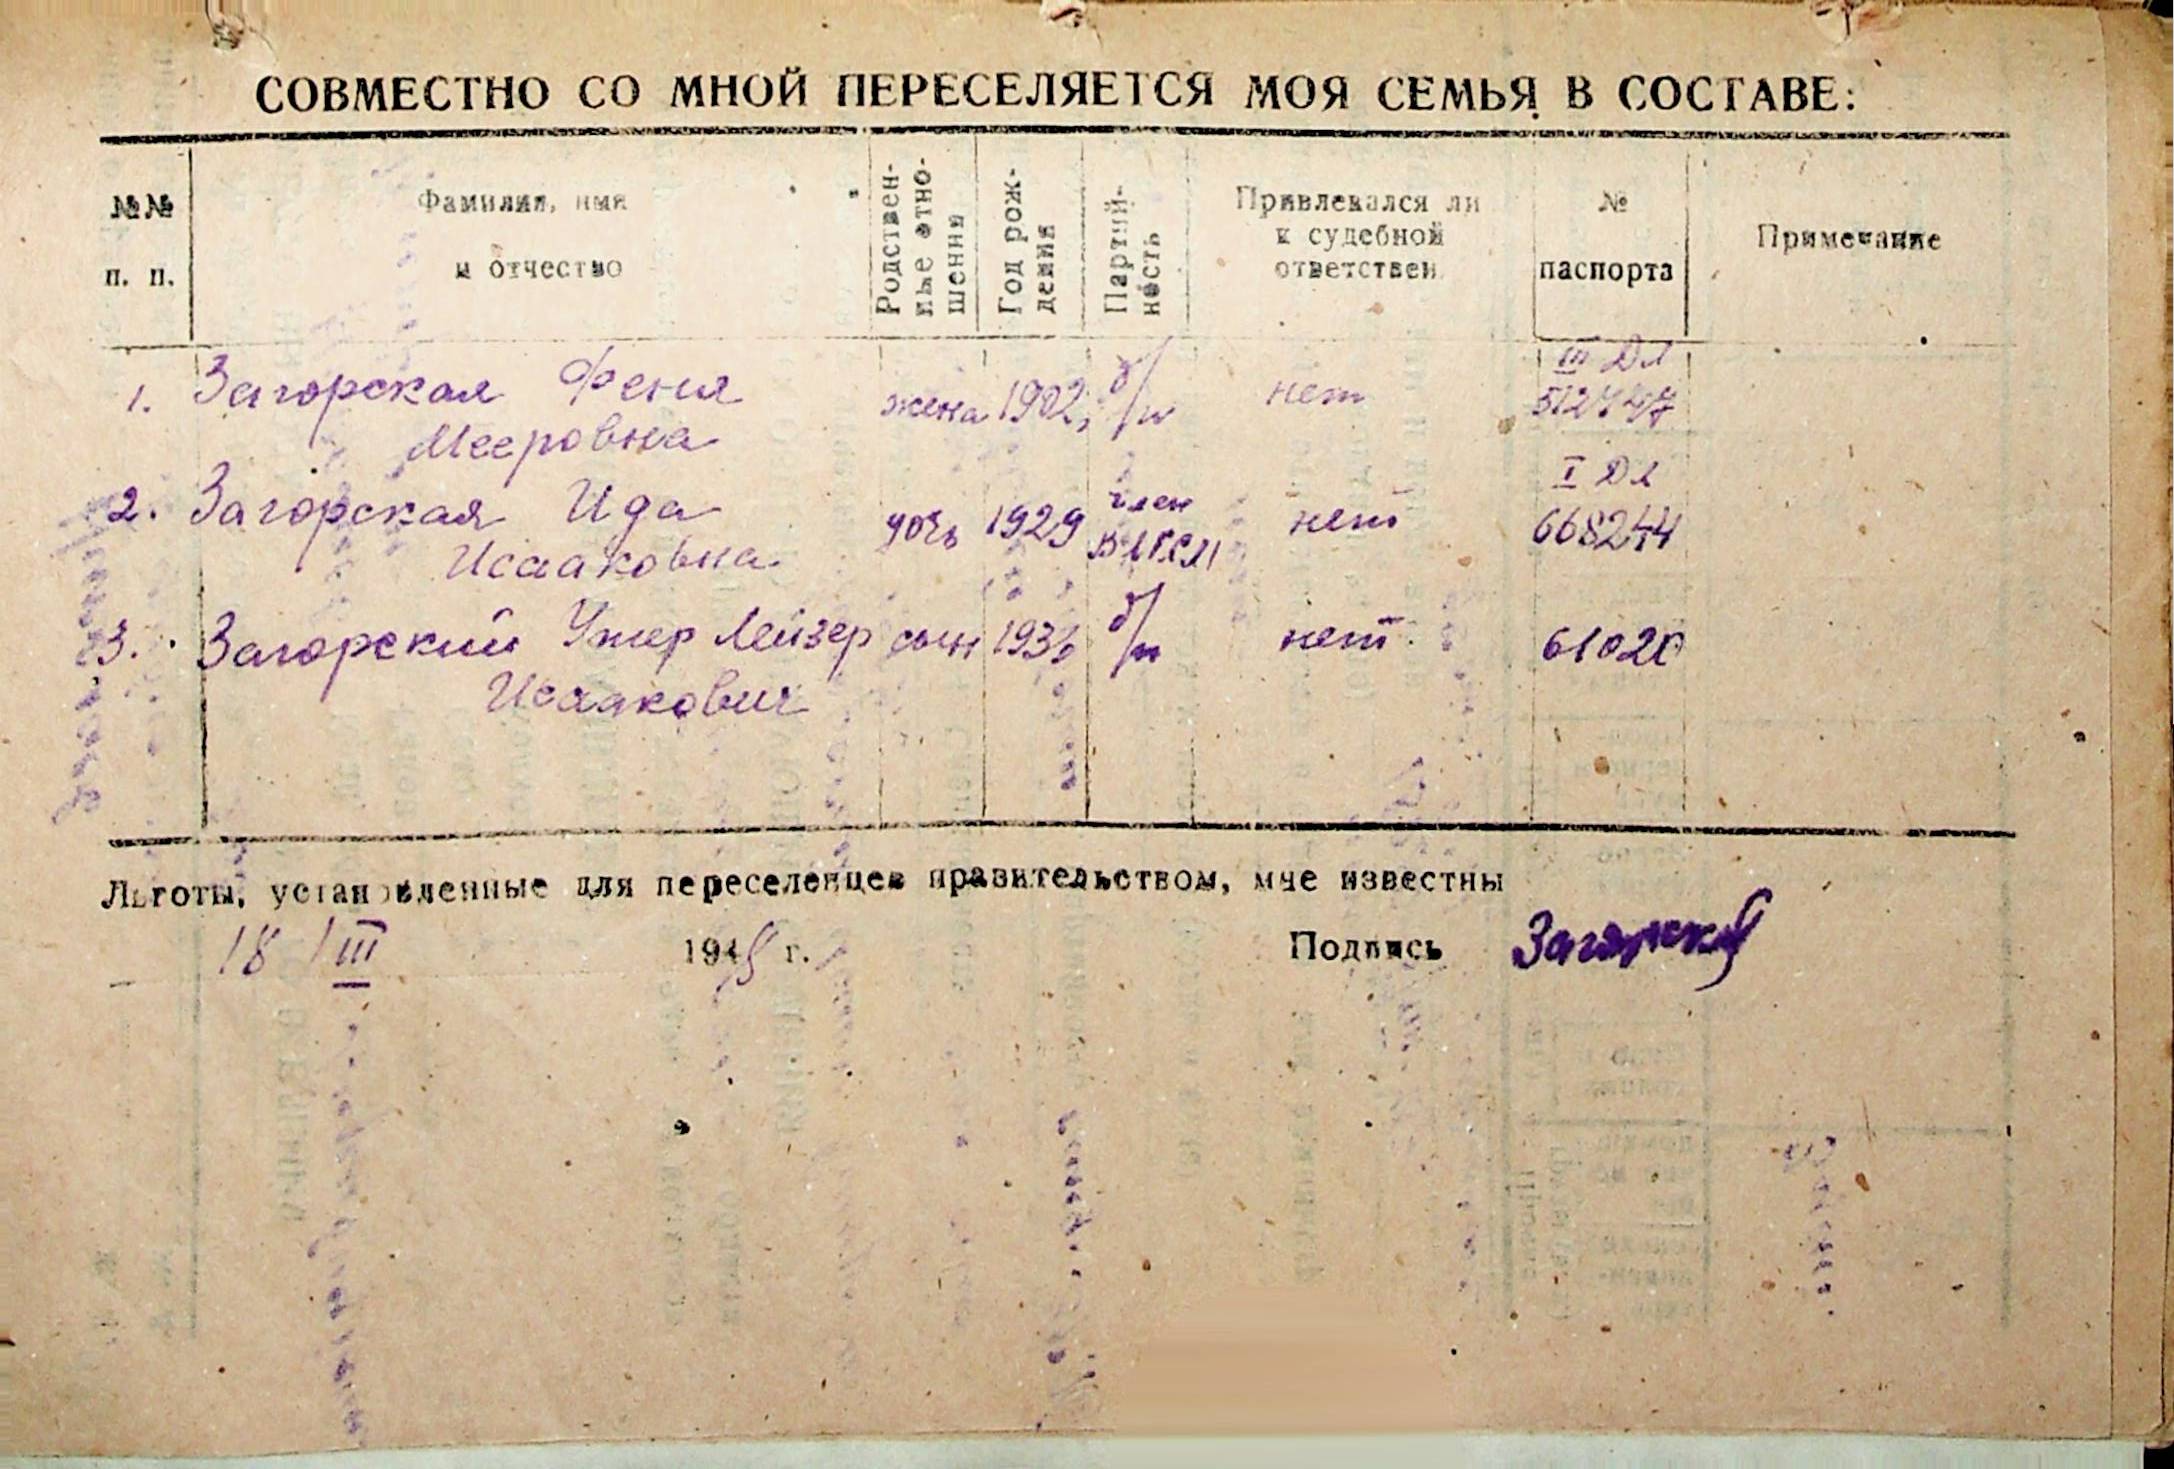 СОВМЕСТНО СО МНОЙ ПЕРЕСЕЛЯЕТСЯ МОЯ СЕМЬЯ В СОСТАВЕ:
№№ п. п.
Фамилия, имя и отчество
Родствен- ные отно- шения
Год рож- дения
Партий- ность
Привлекался ли к судебной ответствен.
№ паспорта
Примечание
1. Загорская Феня Мееровна жена 1902 б/п нет III ДЛ 512747
2. Загорская Ида Исааковна дочь 1929 член ВЛКСМ нет I ДЛ 668244
3. Загорский Лейзер Исаакович сын б/п нет 61020
Льготы, установленные для переселенцев правительством, мне известны
18/III 194 г. Подпись Загорский